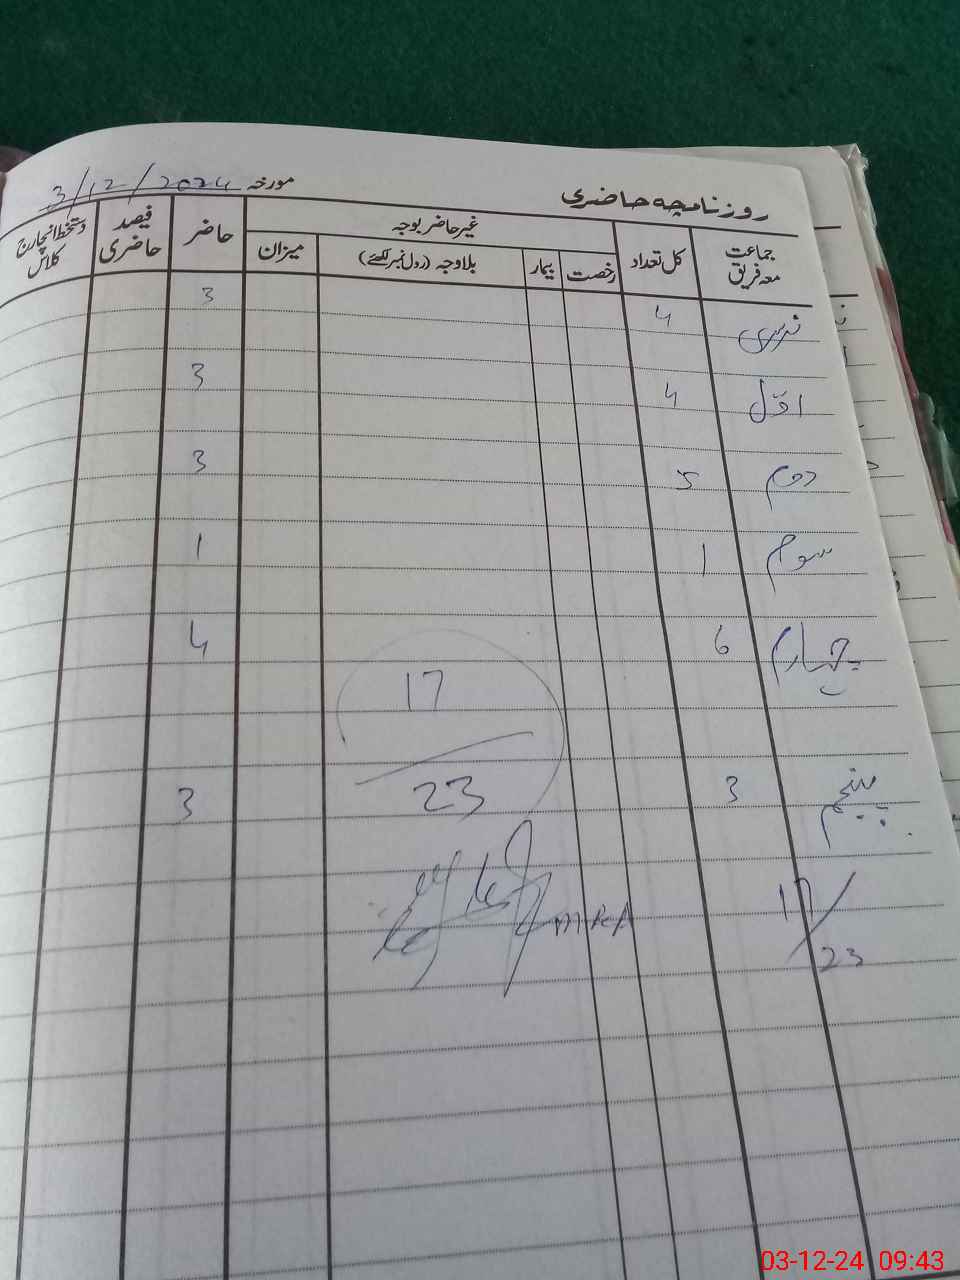 روزنامچہ حاضری
مورخہ 3/12/2024
جماعت معہ فریق کل تعداد غیر حاضر بوجہ حاضر فیصد حاضری دستخط انچارج کلاس
رخصت بیمار بلاوجہ (رول نمبر لکھئے) میزان
نرسری 4 3
اوّل 4 3
دوم 5 3
سوم 1 1
چہارم 6 4
17
پنجم 3 23 3
17/23
03-12-24 09:43